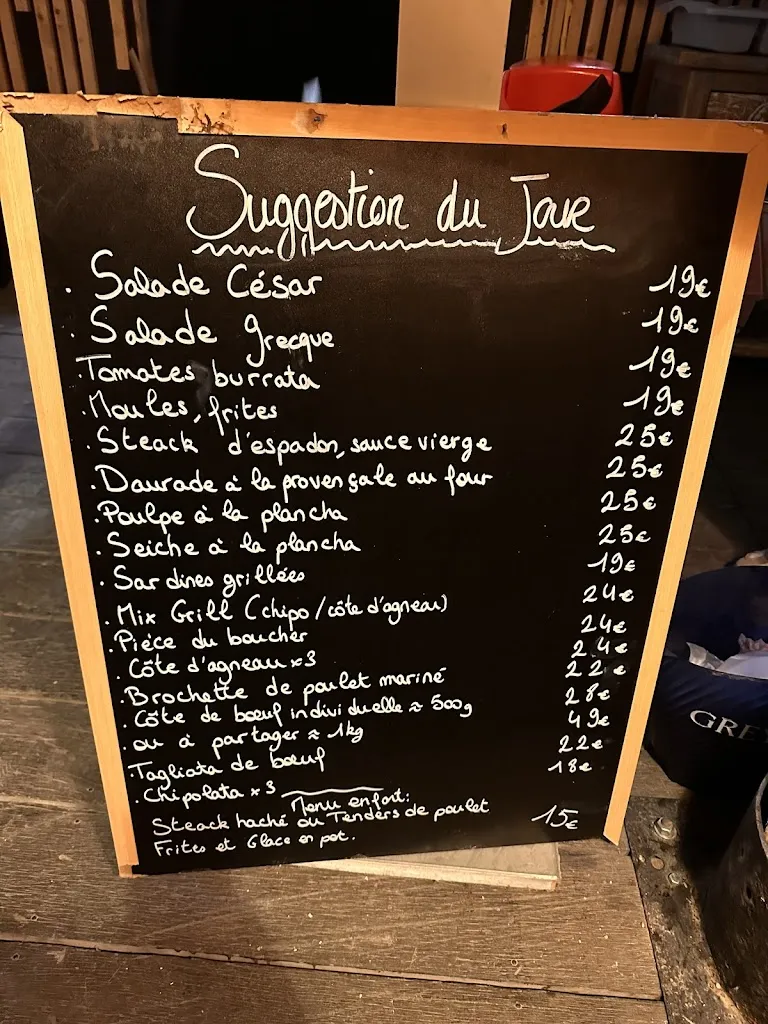 Suggestion du Jour
. Salade César 19€
. Salade grecque 19€
. Tomates burrata 19€
. Moules, frites 19€
. Steack d'espadon, sauce vierge 25€
. Daurade à la provençale au four 25€
. Poulpe à la plancha 25€
. Seiche à la plancha 25€
. Sardines grillées 19€
. Mix Grill (chipo/côte d'agneau) 24€
. Piéce du boucher 24€
. Côte d'agneau x3 24€
. Brochette de poulet mariné 22€
. Côte de bœuf individuelle ≈ 500g 28€
. ou à partager ≈ 1kg 49€
. Tagliata de bœuf 22€
. Chipolata x3 18€
Menu enfant:
Steack haché ou Tenders de poulet 15€
Frites et Glace en pot.
GRE